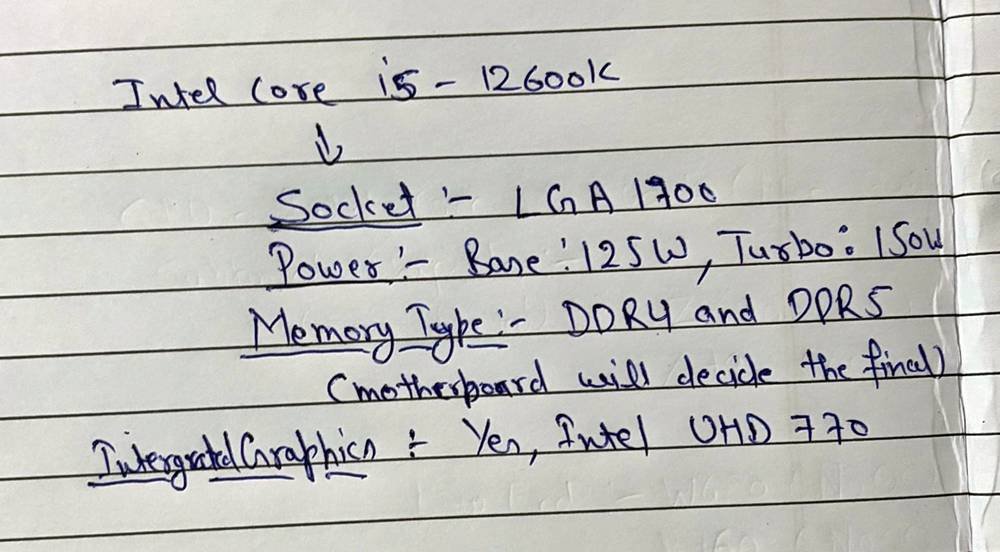 Intel Core i5 - 12600K
↓
Socket :- LGA 1700
Power :- Base : 125W, Turbo : 150W
Memory Type :- DDR4 and DDR5
(motherboard will decide the final)
IntergratedGraphics :- Yes, Intel UHD 770